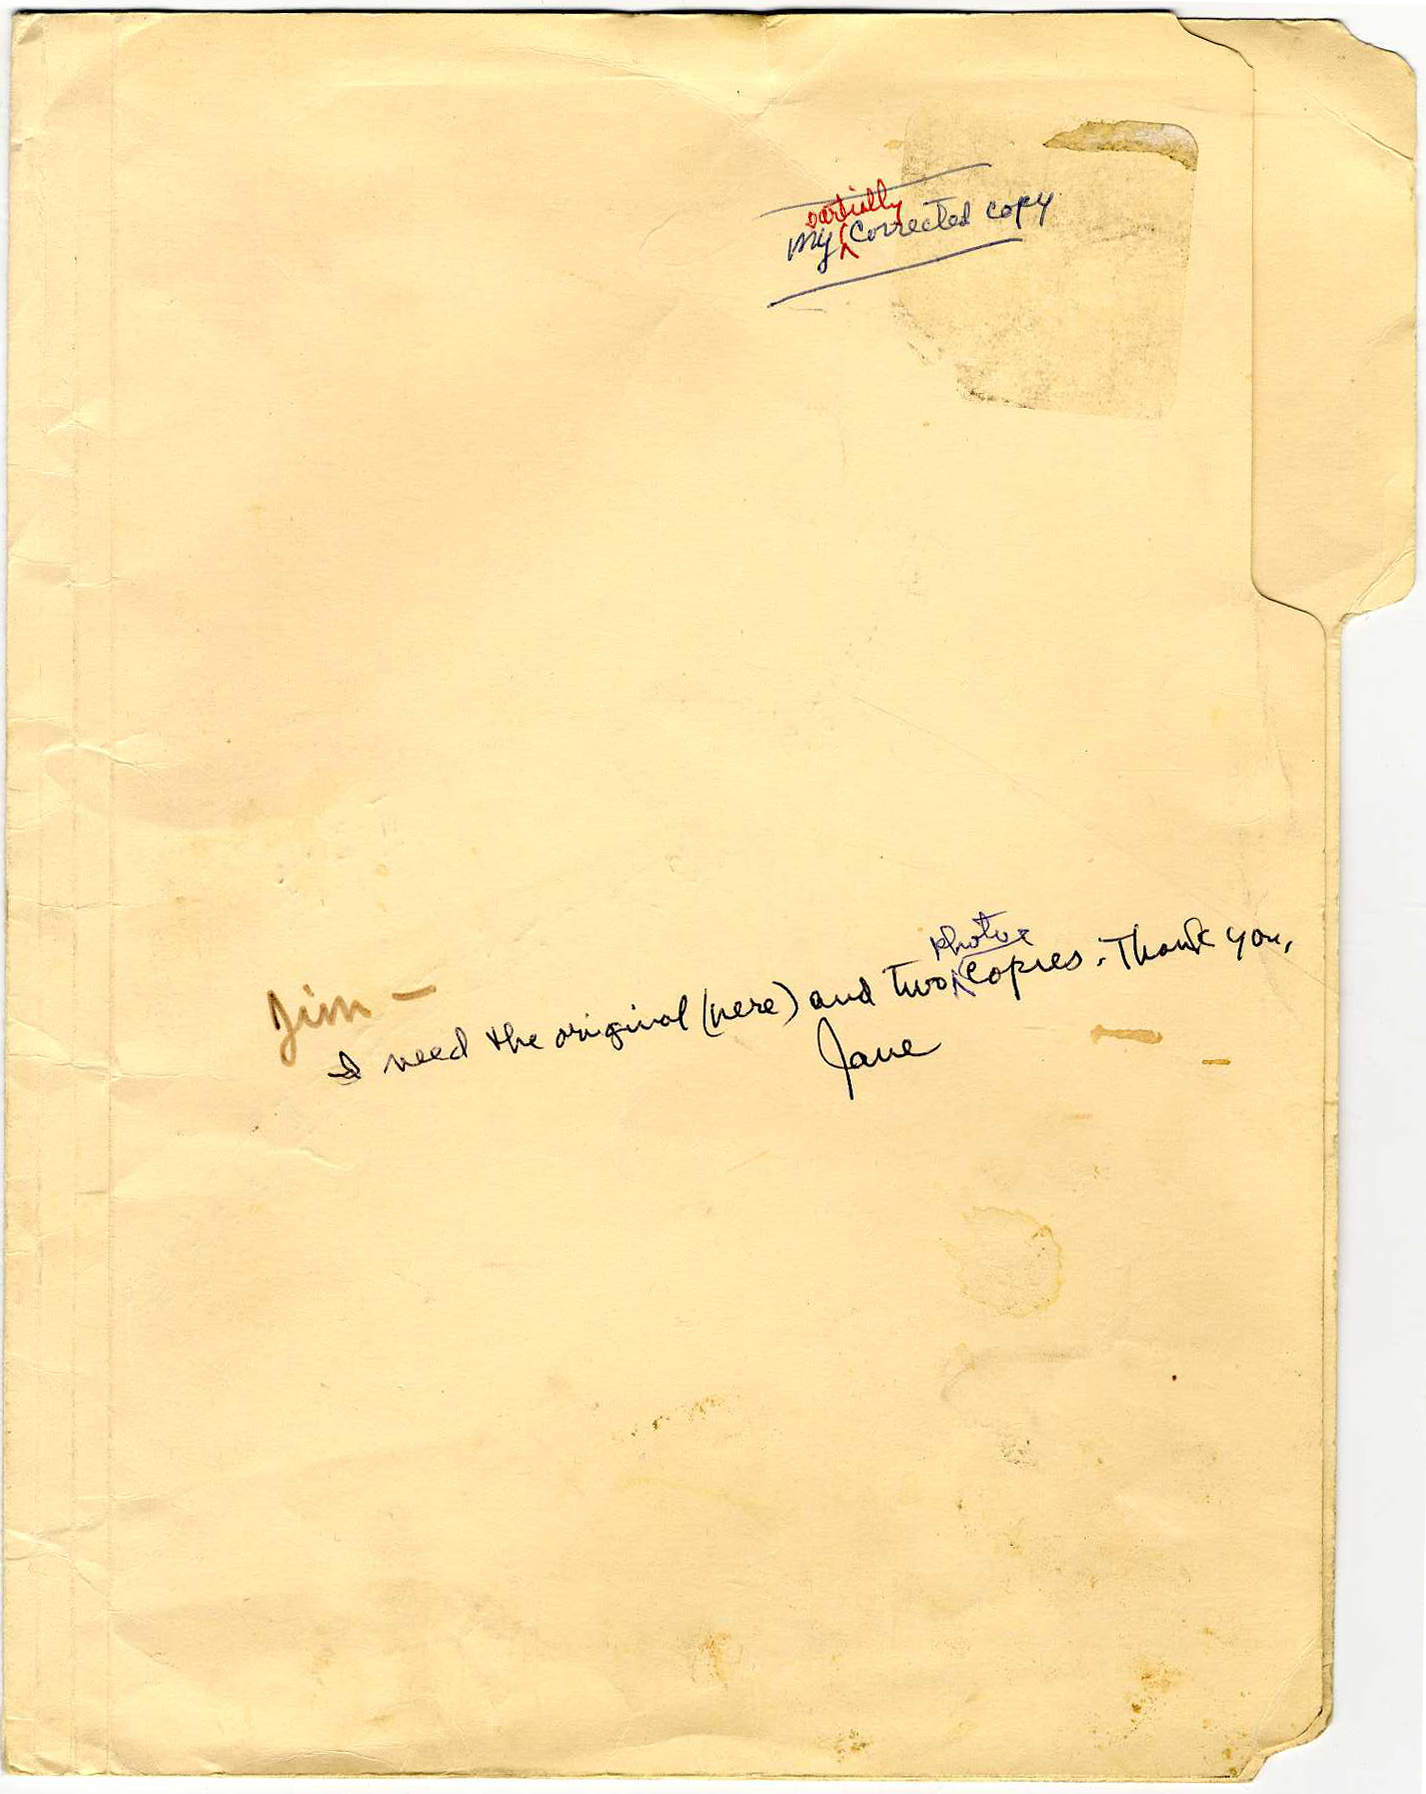 My partially corrected copy
Jim -
I need the original (here) and two photo copies. Thank you,
Jane